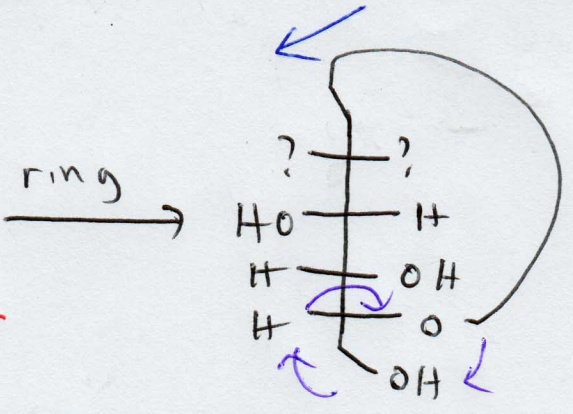 ring
? ?
HO H
H OH
H O
OH